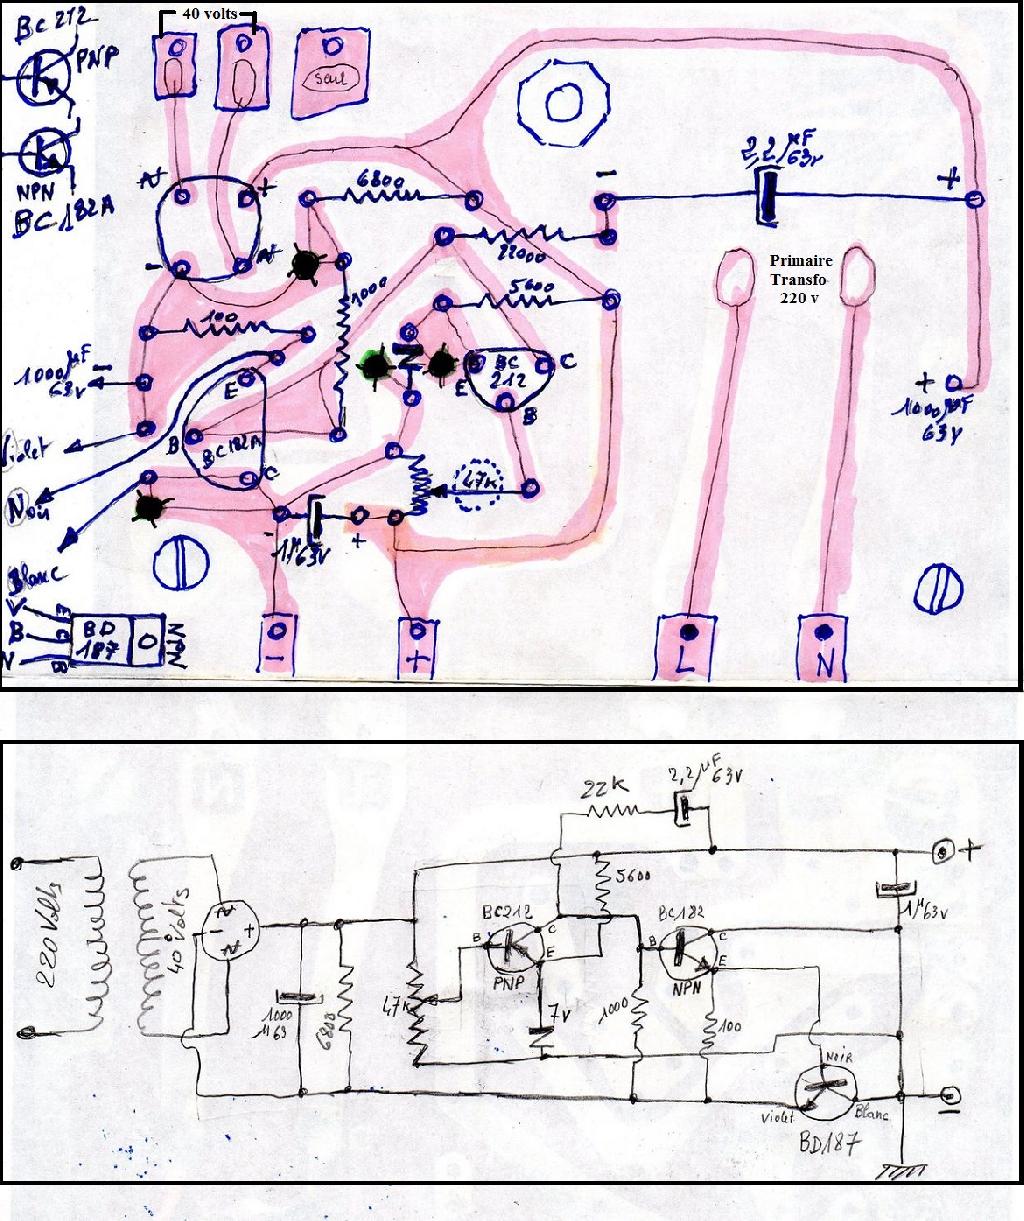 BC 212
PNP
NPN
BC 182A
40 volts
seul
A+
+
-
A+
6800
-
2,2 µF
63v
+
22000
1000
5600
100
Primaire
Transfo
220 v
1000 µF
63v
E
B
BC182A
C
E
BC
212
C
B
Violet
Noir
Blanc
47K
-
1µ/63V
+
+
1000µF
63V
V
B
N
BD
187
NPN
-
+
L
N
22K
2,2 µF
63v
+
5600
1µ63v
BC212
C
B
E
PNP
BC182
C
B
E
NPN
220 Volts
40 Volts
-
+
1000
µ63
6800
47K
7v
1000
100
NOIR
Violet
Blanc
BD187
-